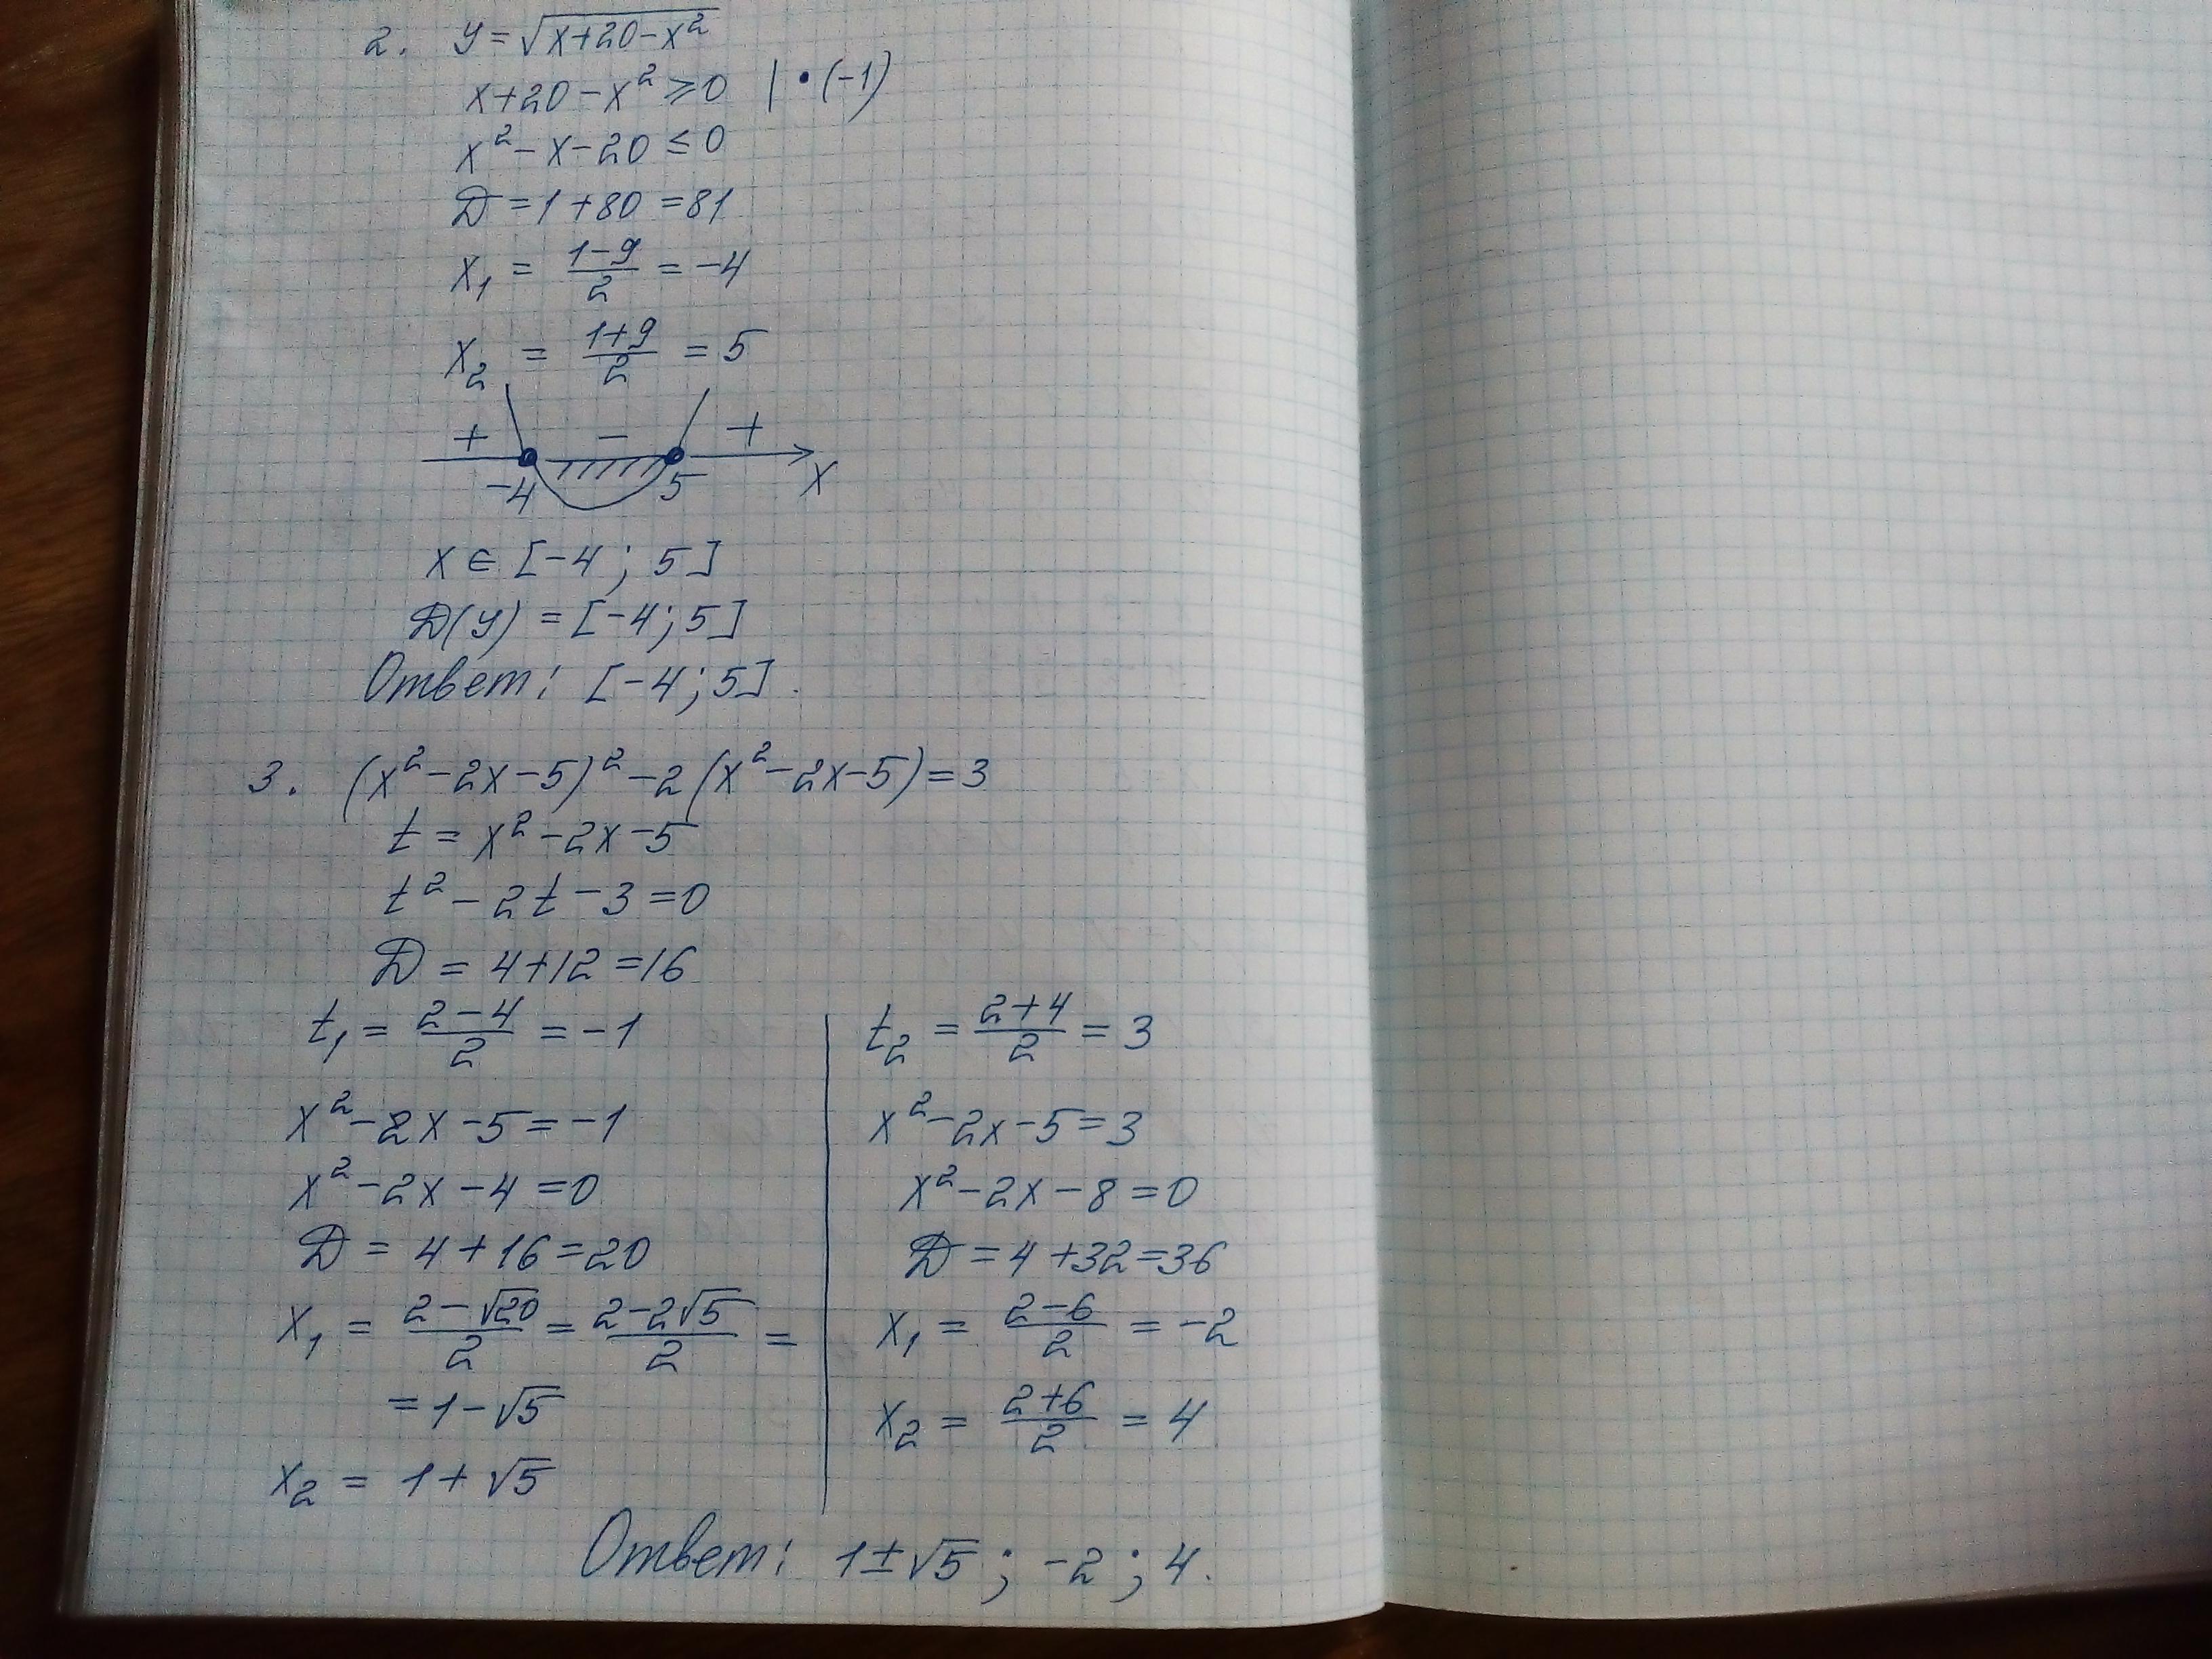 2. y = √(x+20-x²)
x+20-x² ⩾ 0 | • (-1)
x²-x-20 ≤ 0
D = 1+80 = 81
x₁ = (1-9)/2 = -4
x₂ = (1+9)/2 = 5
+ - +
-4 5 x
x ∈ [-4; 5]
D(y) = [-4; 5]
Ответ: [-4; 5].
3. (x²-2x-5)²-2(x²-2x-5)=3
t = x²-2x-5
t²-2t-3=0
D = 4+12=16
t₁ = (2-4)/2 = -1
x²-2x-5=-1
x²-2x-4=0
D = 4+16=20
x₁ = (2-√20)/2 = (2-2√5)/2 =
= 1-√5
x₂ = 1+√5
t₂ = (2+4)/2 = 3
x²-2x-5=3
x²-2x-8=0
D=4+32=36
x₁ = (2-6)/2 = -2
x₂ = (2+6)/2 = 4
Ответ: 1±√5; -2; 4.